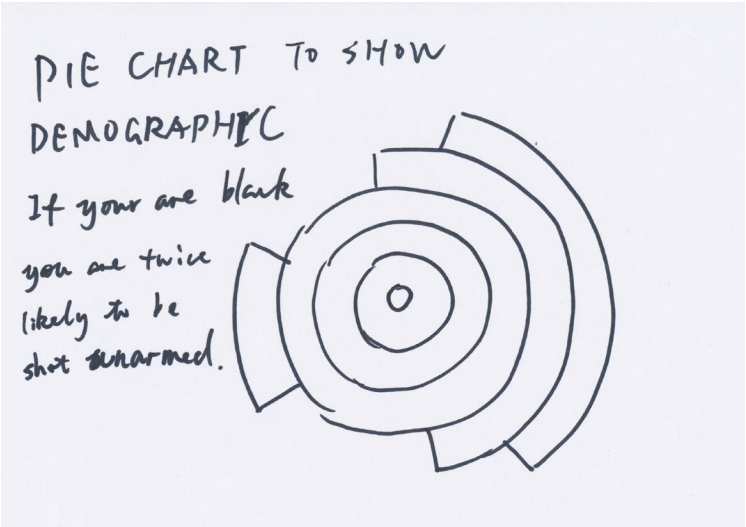 PIE CHART TO SHOW
DEMOGRAPHIC
If your are blank
you are twice
likely to be
shot unarmed.